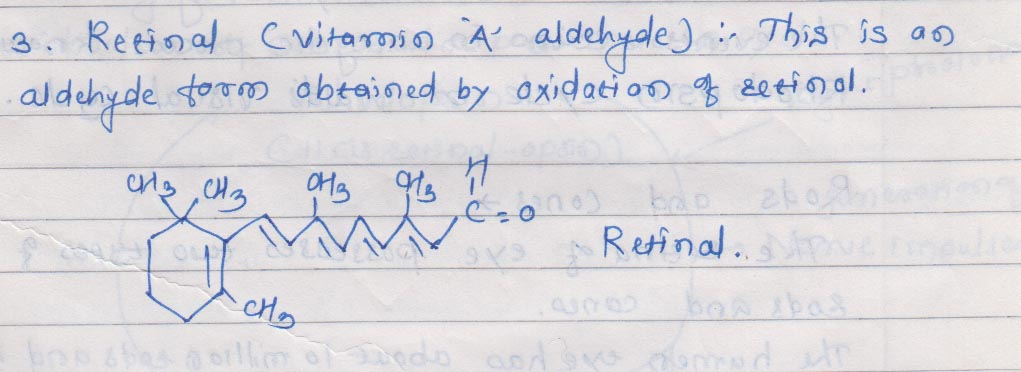 3. Retinal (vitamin 'A' aldehyde) :- This is an
aldehyde form obtained by oxidation of retinol.
CH3 CH3 CH3 CH3 H
C=O
Retinal.
CH3